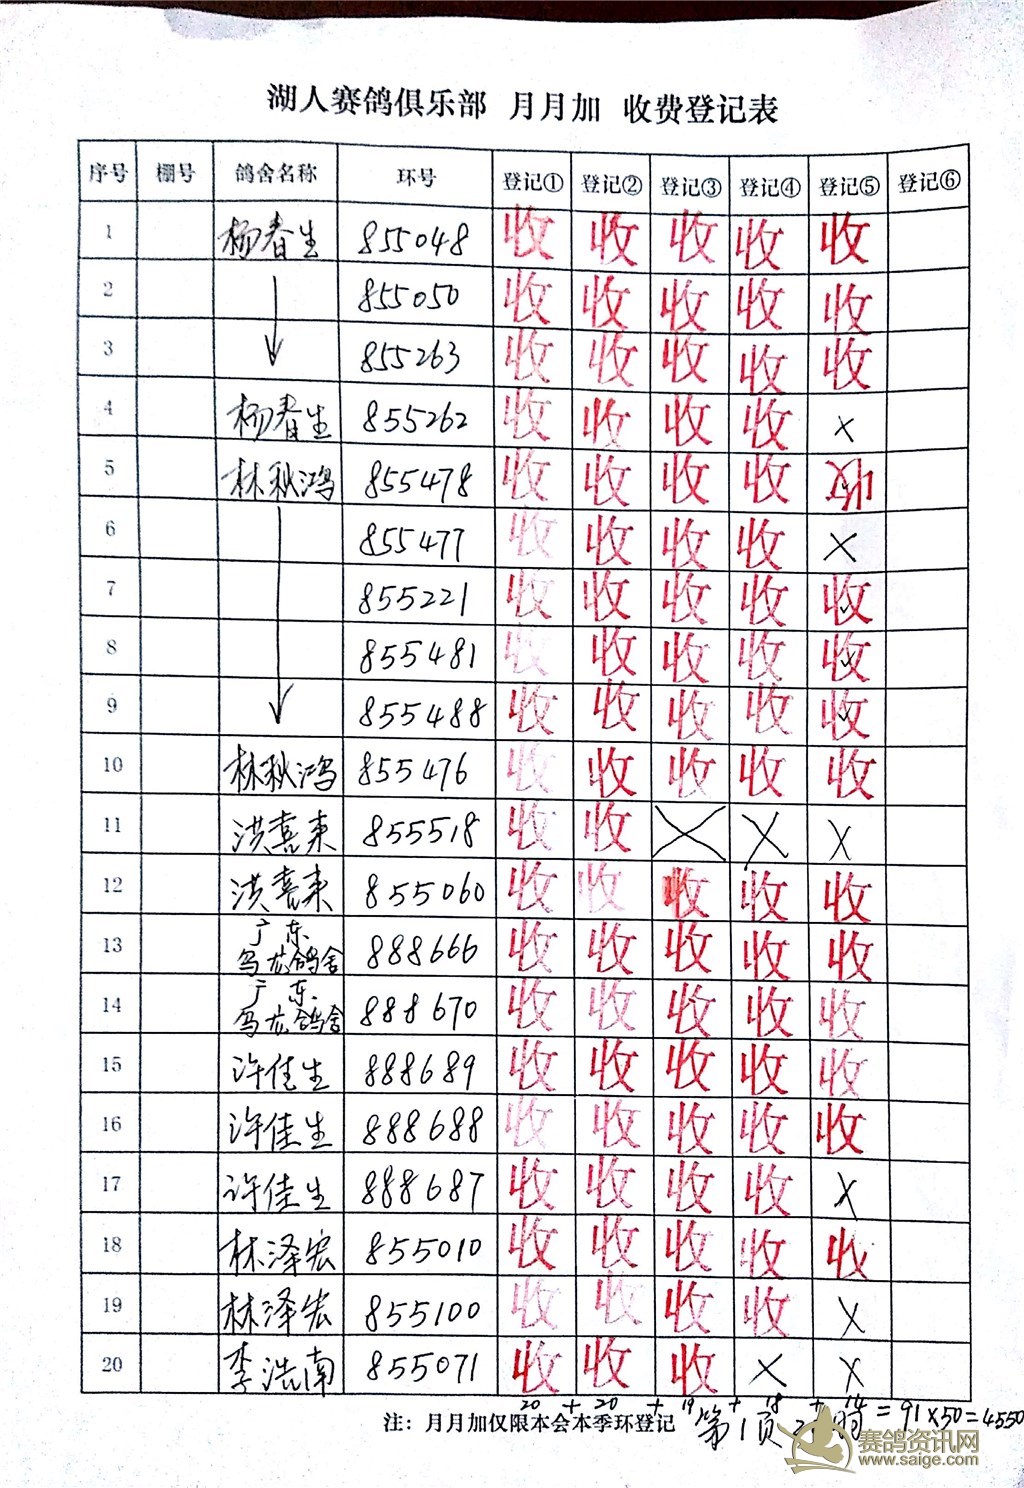 湖人赛鸽俱乐部 月月加 收费登记表
序号 棚号 鸽舍名称 环号 登记① 登记② 登记③ 登记④ 登记⑤ 登记⑥
1 杨春生 855048 收 收 收 收 收
2 855050 收 收 收 收 收
3 855263 收 收 收 收 收
4 杨春生 855262 收 收 收 收 ×
5 林秋鸿 855478 收 收 收 收 收
6 855477 收 收 收 收 ×
7 855221 收 收 收 收 收
8 855481 收 收 收 收 收
9 855488 收 收 收 收 收
10 林秋鸿 855476 收 收 收 收 收
11 洪喜束 855518 收 收 × × ×
12 洪喜束 855060 收 收 收 收 收
13 广东乌龙鸽舍 888666 收 收 收 收 收
14 广东乌龙鸽舍 888670 收 收 收 收 收
15 许佳生 888689 收 收 收 收 收
16 许佳生 888688 收 收 收 收 收
17 许佳生 888687 收 收 收 收 ×
18 林泽宏 855010 收 收 收 收 收
19 林泽宏 855100 收 收 收 收 ×
20 李浩南 855071 收 收 收 × ×
20 + 20 + 19 + 18 + 14 = 91×50=4550
注：月月加仅限本会本季环登记 第1页
赛鸽资讯网
www.saige.com